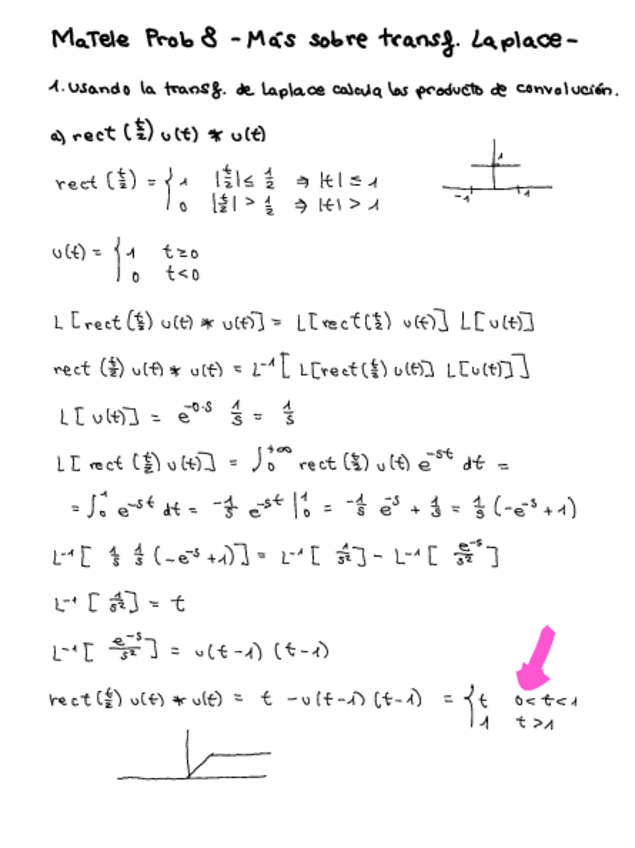 MaTele Prob 8 - Más sobre transf. Laplace -
1. Usando la transf. de Laplace calcula los producto de convolución.
a) rect (t/2) u(t) * u(t)
rect (t/2) = { 1 |t/2| ≤ 1/2 ⇒ |t| ≤ 1
0 |t/2| > 1/2 ⇒ |t| > 1
1
-1 1
u(t) = { 1 t≥0
0 t<0
L [rect (t/2) u(t) * u(t)] = L[rect(t/2) u(t)] L[u(t)]
rect (t/2) u(t) * u(t) = L⁻¹ [ L[rect(t/2) u(t)] L[u(t)] ]
L [ u(t)] = e^-0·s 1/s = 1/s
L[ rect (t/2) u(t)] = ∫₀^+∞ rect (t/2) u(t) e^-st dt =
= ∫₀¹ e^-st dt = -1/s e^-st |₀¹ = -1/s e^-s + 1/s = 1/s (-e^-s + 1)
L⁻¹ [ 1/s 1/s (-e^-s +1)] = L⁻¹ [ 1/s²] - L⁻¹ [ e^-s/s² ]
L⁻¹ [ 1/s²] = t
L⁻¹ [ e^-s/s² ] = u(t-1) (t-1)
rect(t/2) u(t) * u(t) = t - u(t-1) (t-1) = { t 0<t<1
1 t>1